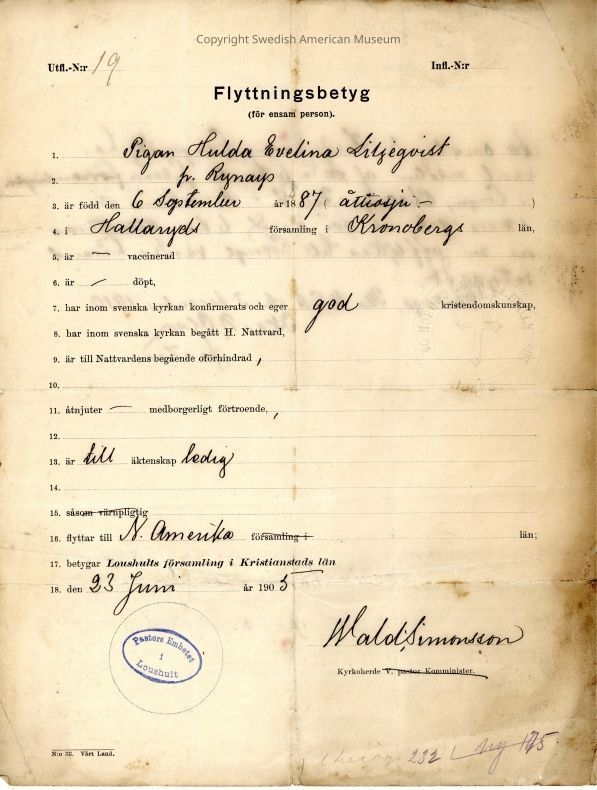 Copyright Swedish American Museum
Utfl.-N:r 19 Infl.-N:r
Flyttningsbetyg
(för ensam person).
1. Pigan Hulda Evelina Liljeqvist
2. fr. Rynays
3. är född den 6 September år 1887 (åttiosju —)
4. i Hallaryds församling i Kronobergs län,
5. är — vaccinerad
6. är — döpt,
7. har inom svenska kyrkan konfirmerats och eger god kristendomskunskap,
8. har inom svenska kyrkan begått H. Nattvard,
9. är till Nattvardens begående oförhindrad,
10.
11. åtnjuter — medborgerligt förtroende,
12.
13. är till äktenskap ledig
14.
15. såsom värnpligtig
16. flyttar till N. Amerika församling i län;
17. betygar Loushults församling i Kristianstads län
18. den 23 Juni år 1905
Wald. Simonsson
Kyrkoherde V. pastor Komminister.
Pastors Embetet
i
Loushult
N:o 33. Vårt Land.
232